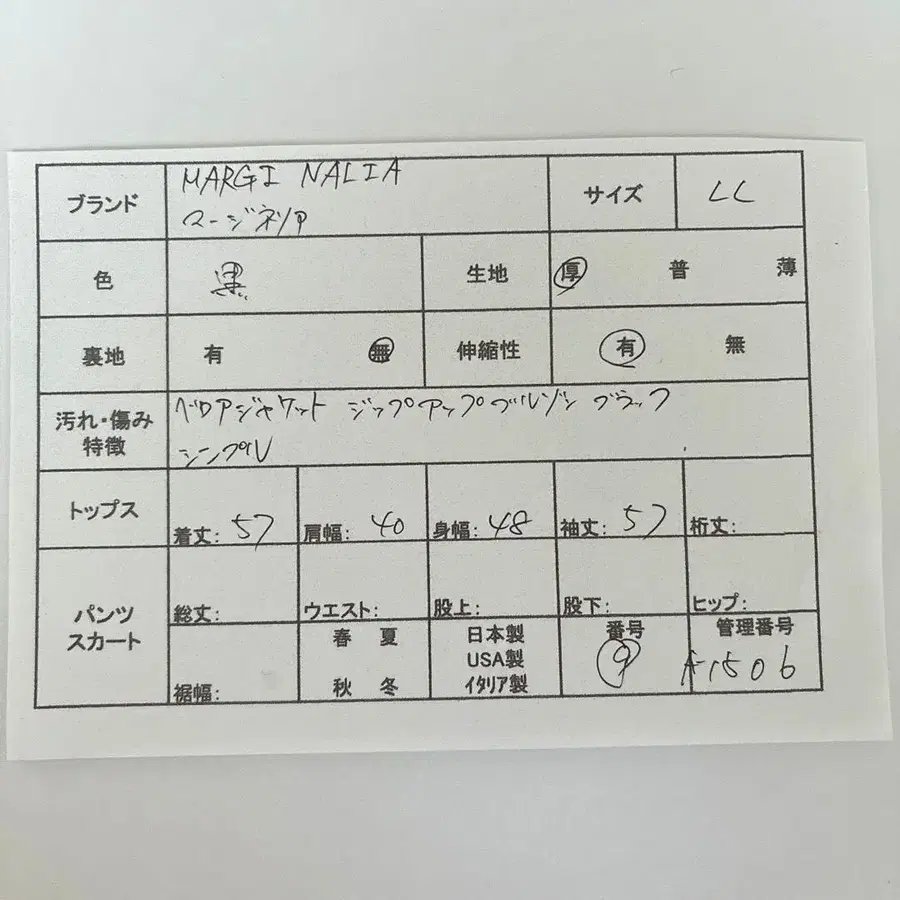 ブランド MARGI NALIA サイズ LL
マージネリア
色 黒 生地 厚 普 薄
裏地 有 無 伸縮性 有 無
汚れ・傷み ベロアジャケット ジップアップブルゾン ブラック
特徴 シンプル
トップス 着丈: 57 肩幅: 40 身幅: 48 袖丈: 57 裄丈:
パンツ 総丈: ウエスト: 股上: 股下: ヒップ:
スカート 裾幅: 春 夏 日本製 番号 管理番号
USA製 9 A-1506
秋 冬 イタリア製